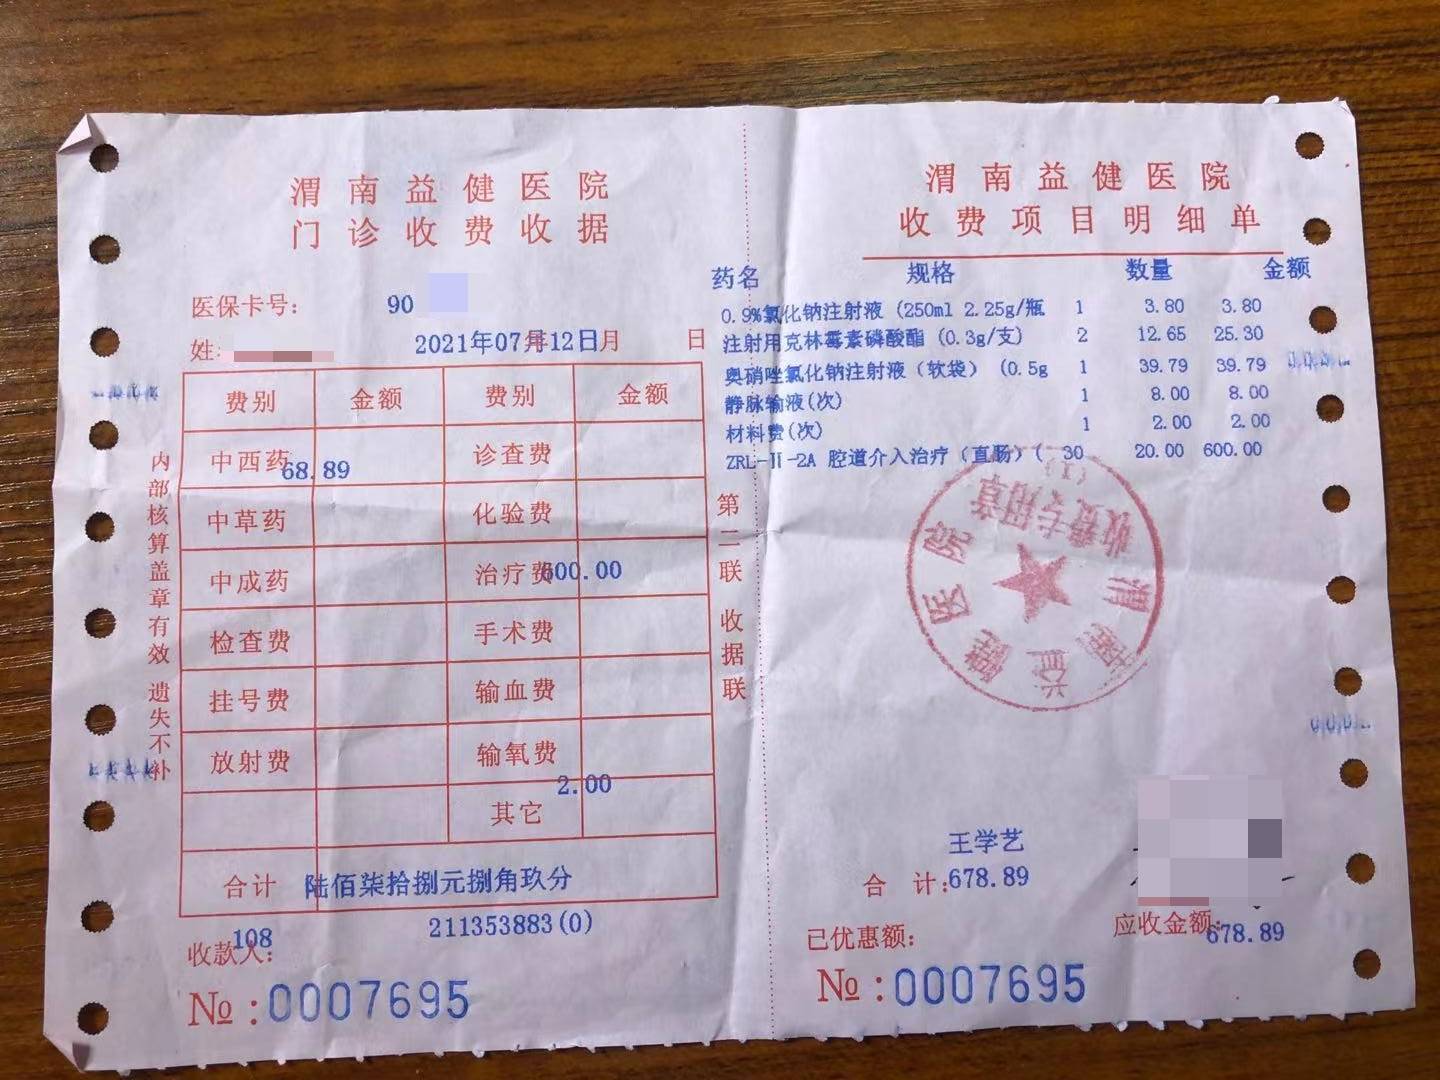 渭南益健医院
门诊收费收据
医保卡号: 90
姓:
2021年07月12日 月 日
费别 金额 费别 金额
中西药 68.89 诊查费
中草药 化验费
中成药 治疗费 600.00
检查费 手术费
挂号费 输血费
放射费 输氧费
其它 2.00
合计 陆佰柒拾捌元捌角玖分
收款人: 108 211353883(0)
№:0007695
内部核算盖章有效 遗失不补
第二联 收据联
渭南益健医院
收费项目明细单
药名 规格 数量 金额
0.9%氯化钠注射液 (250ml 2.25g/瓶 1 3.80 3.80
注射用克林霉素磷酸酯 (0.3g/支) 2 12.65 25.30
奥硝唑氯化钠注射液 (软袋) (0.5g 1 39.79 39.79
静脉输液(次) 1 8.00 8.00
材料费(次) 1 2.00 2.00
ZRL-Ⅱ-2A 腔道介入治疗 (直肠) ( 30 20.00 600.00
渭南益健医院
收费专用章
(1)
王学艺
合 计:678.89
已优惠额: 应收金额:678.89
№:0007695